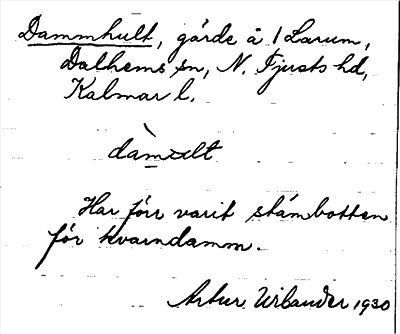 Dammhult, gärde å 1 Larum,
Dalhems sn, N. Tjusts hd,
Kalmar l.
dàmult
Har förr varit stämbotten
för kvarndamm.
Artur Wilander 1930